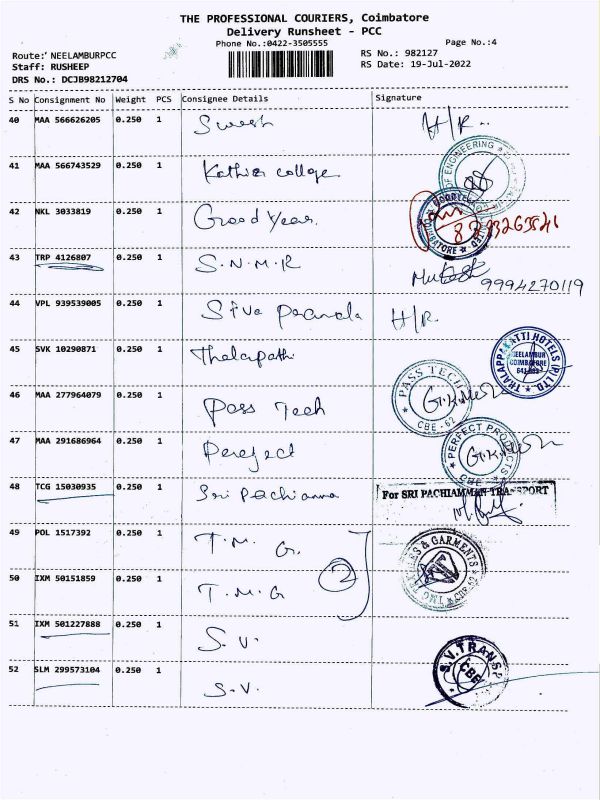 THE PROFESSIONAL COURIERS, Coimbatore
Delivery Runsheet - PCC
Phone No.:0422-3505555 Page No.:4
Route: NEELAMBURPCC RS No.: 982127
Staff: RUSHEEP RS Date: 19-Jul-2022
DRS No.: DCJB98212704
S No Consignment No Weight PCS Consignee Details Signature
40 MAA 566626205 0.250 1 Suresh H/R..
41 MAA 566743529 0.250 1 Kathir college OF ENGINEERING
42 NKL 3033819 0.250 1 Good Year
43 TRP 4126807 0.250 1 S.N.M.R Mukesh 9994270119
44 VPL 939539005 0.250 1 Siva H/R
45 SVK 10290871 0.250 1 Thalapathi THALAPPAKATTI HOTELS (P) LTD NEELAMBUR COIMBATORE
46 MAA 277964079 0.250 1 Pass Tech PASS TECH CBE - 62
47 MAA 291686964 0.250 1 Perefect PERFECT PRODUCTS CBE
48 TCG 15030935 0.250 1 Sri Pachiamma For SRI PACHIAMMAN TRANSPORT
49 POL 1517392 0.250 1 T.M.G. & GARMENTS
50 IXM 50151859 0.250 1 T.M.G 2
51 IXM 501227888 0.250 1 S.V.
52 SLM 299573104 0.250 1 S.V. S.V.TRANSP CBE